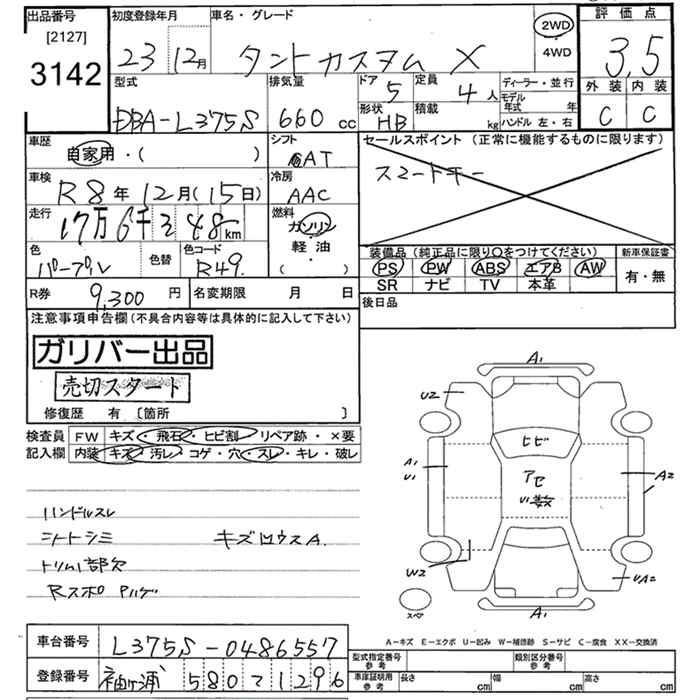 出品番号
[2127]
3142
初度登録年月
23 12月
車名・グレード
タントカスタム X
2WD
・
4WD
評価点
3.5
外装 内装
C C
型式
DBA-L375S
排気量
660 cc
ドア 5
形状 HB
定員 4人
積載 kg
ディーラー・並行
モデル年式 年
ハンドル 左・右
車歴
自家用・( )
シフト
AT
セールスポイント (正常に機能するものに限ります)
スマートキー
車検
R8年12月(15日)
冷房
AAC
走行
17万6千348km
燃料
ガソリン
軽油
( )
色
パープル
色替
色コード
R49
装備品 (純正品に限り○をつけてください)
新車保証書
PS PW ABS エアB AW
有・無
SR ナビ TV 本革
R券 9,300 円
名変期限 月 日
後日品
注意事項申告欄 (不具合内容等は具体的に記入して下さい)
ガリバー出品
売切スタート
修復歴 有 〔箇所 〕
検査員
記入欄
FW キズ・飛石・ヒビ割・リペア跡・×要
内装 キズ・汚レ・コゲ・穴・スレ・キレ・破レ
ハンドルスレ
シートシミ
キズロウスA.
トリム部欠
A1
U2
ヒビ
A1
U1
アセ
U1数
A2
A2
W2
UA2
スペア
A1
A-キズ E-エクボ U-凹み W-補修跡 S-サビ C-腐食 XX-交換済
車台番号
L375S-0486557
登録番号
袖ヶ浦 580 1296
型式指定番号
参考
類別区分番号
参考
車庫証明用
参考
長さ cm
幅 cm
高さ cm